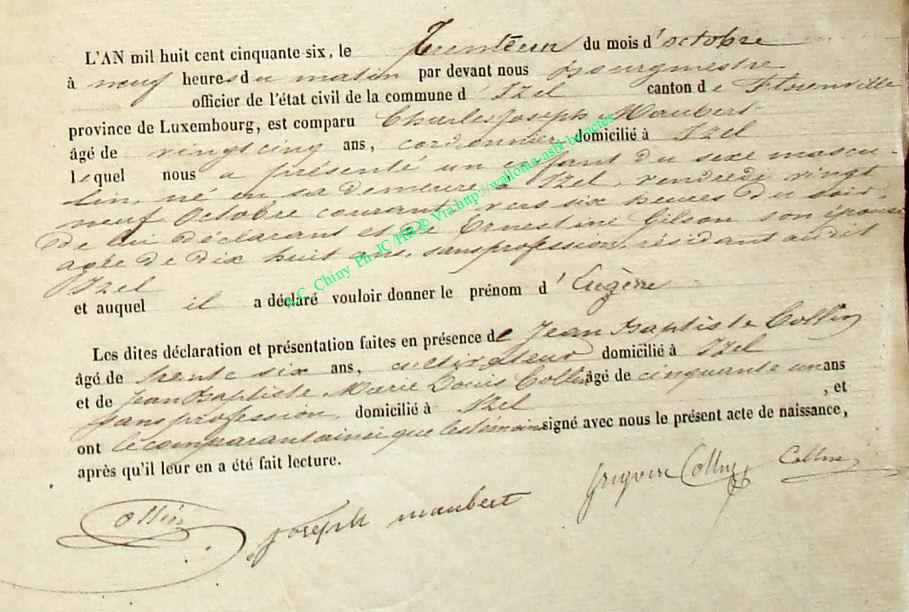 L'AN mil huit cent cinquante-six, le Trenteun du mois d'octobre
à neuf heures du matin par devant nous Bourgmestre
officier de l'état civil de la commune d'Izel canton de Florenville
province de Luxembourg, est comparu Charles Joseph Maubert
âgé de vingt cinq ans, cordonnier domicilié à Izel
lequel nous a présenté un enfant du sexe mascu
lin, né en sa demeure à Izel, vendredi vingt
neuf Octobre courant vers six heures du soir
de lui déclarant et de Ernestine Gilson son épouse
agée de dix huit ans, sans profession, résidant audit
Izel
et auquel il a déclaré vouloir donner le prénom d'Eugène
Les dites déclaration et présentation faites en présence de Jean Baptiste Collin
âgé de trente six ans, cultivateur domicilié à Izel
et de Jean Baptiste Marie Louis Collin âgé de cinquante un ans
sans profession, domicilié à Izel, et
ont le comparant ainsi que les témoins signé avec nous le présent acte de naissance,
après qu'il leur en a été fait lecture.
Collin Joseph maubert Collin
A.C. Chiny Ph JC/HB © Via http://wallonia-asbl.be/actes